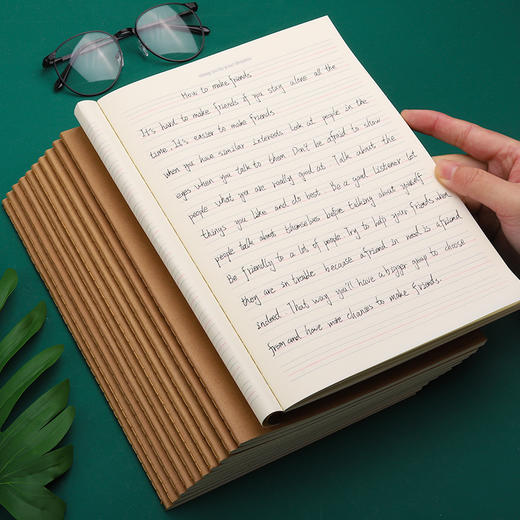 How to make friends
It's hard to make friends if you stay alone all the
time. It's easier to make friends
when you have similar interests Look at people in the
eyes when you talk to them Don't be afraid to show
people what you are really good at. Talk about the
things you like and do best. Be a good Listener let
people talk about themselves before talking about yourself,
Be friendly to a lot of people. Try to help your friends when
they are in trouble because afriend in need is afriend
indeed. That way, you'll have a bigger group to choose
from and have more chances to make friends.